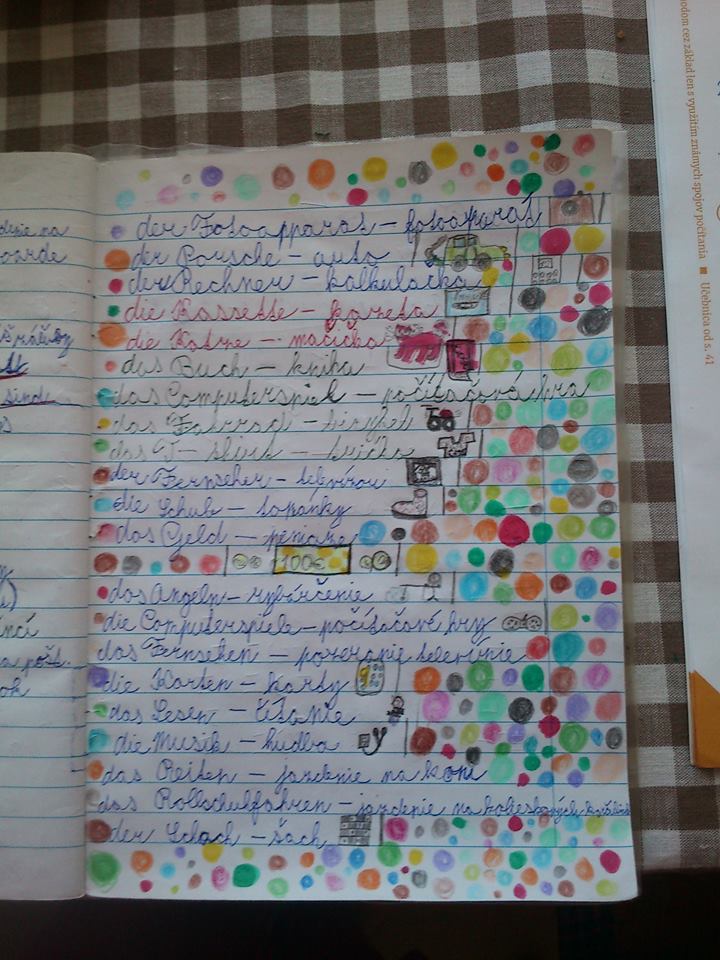 der Fotoapparat – fotoaparát
der Porsche – auto
der Rechner – kalkulačka
die Kassette – kazeta
die Katze – mačička
das Buch – kniha
das Computerspiel – počítačová hra
das Fahrrad – bicykel
das T-Shirt – tričko
der Fernseher – televízor
die Schuh – topánky
das Geld – peniaze
100€
das Angeln – rybárčenie
die Computerspiele – počítačové hry
das Fernsehen – pozeranie televízie
die Karten – karty
das Lesen – čítanie
die Musik – hudba
das Reiten – jazdenie na koni
das Rollschulfahren – jazdenie na kolieskových
der Schach – šach
odom cez základ len s využitím známych spojov počítania ■ Učebnica od s. 41